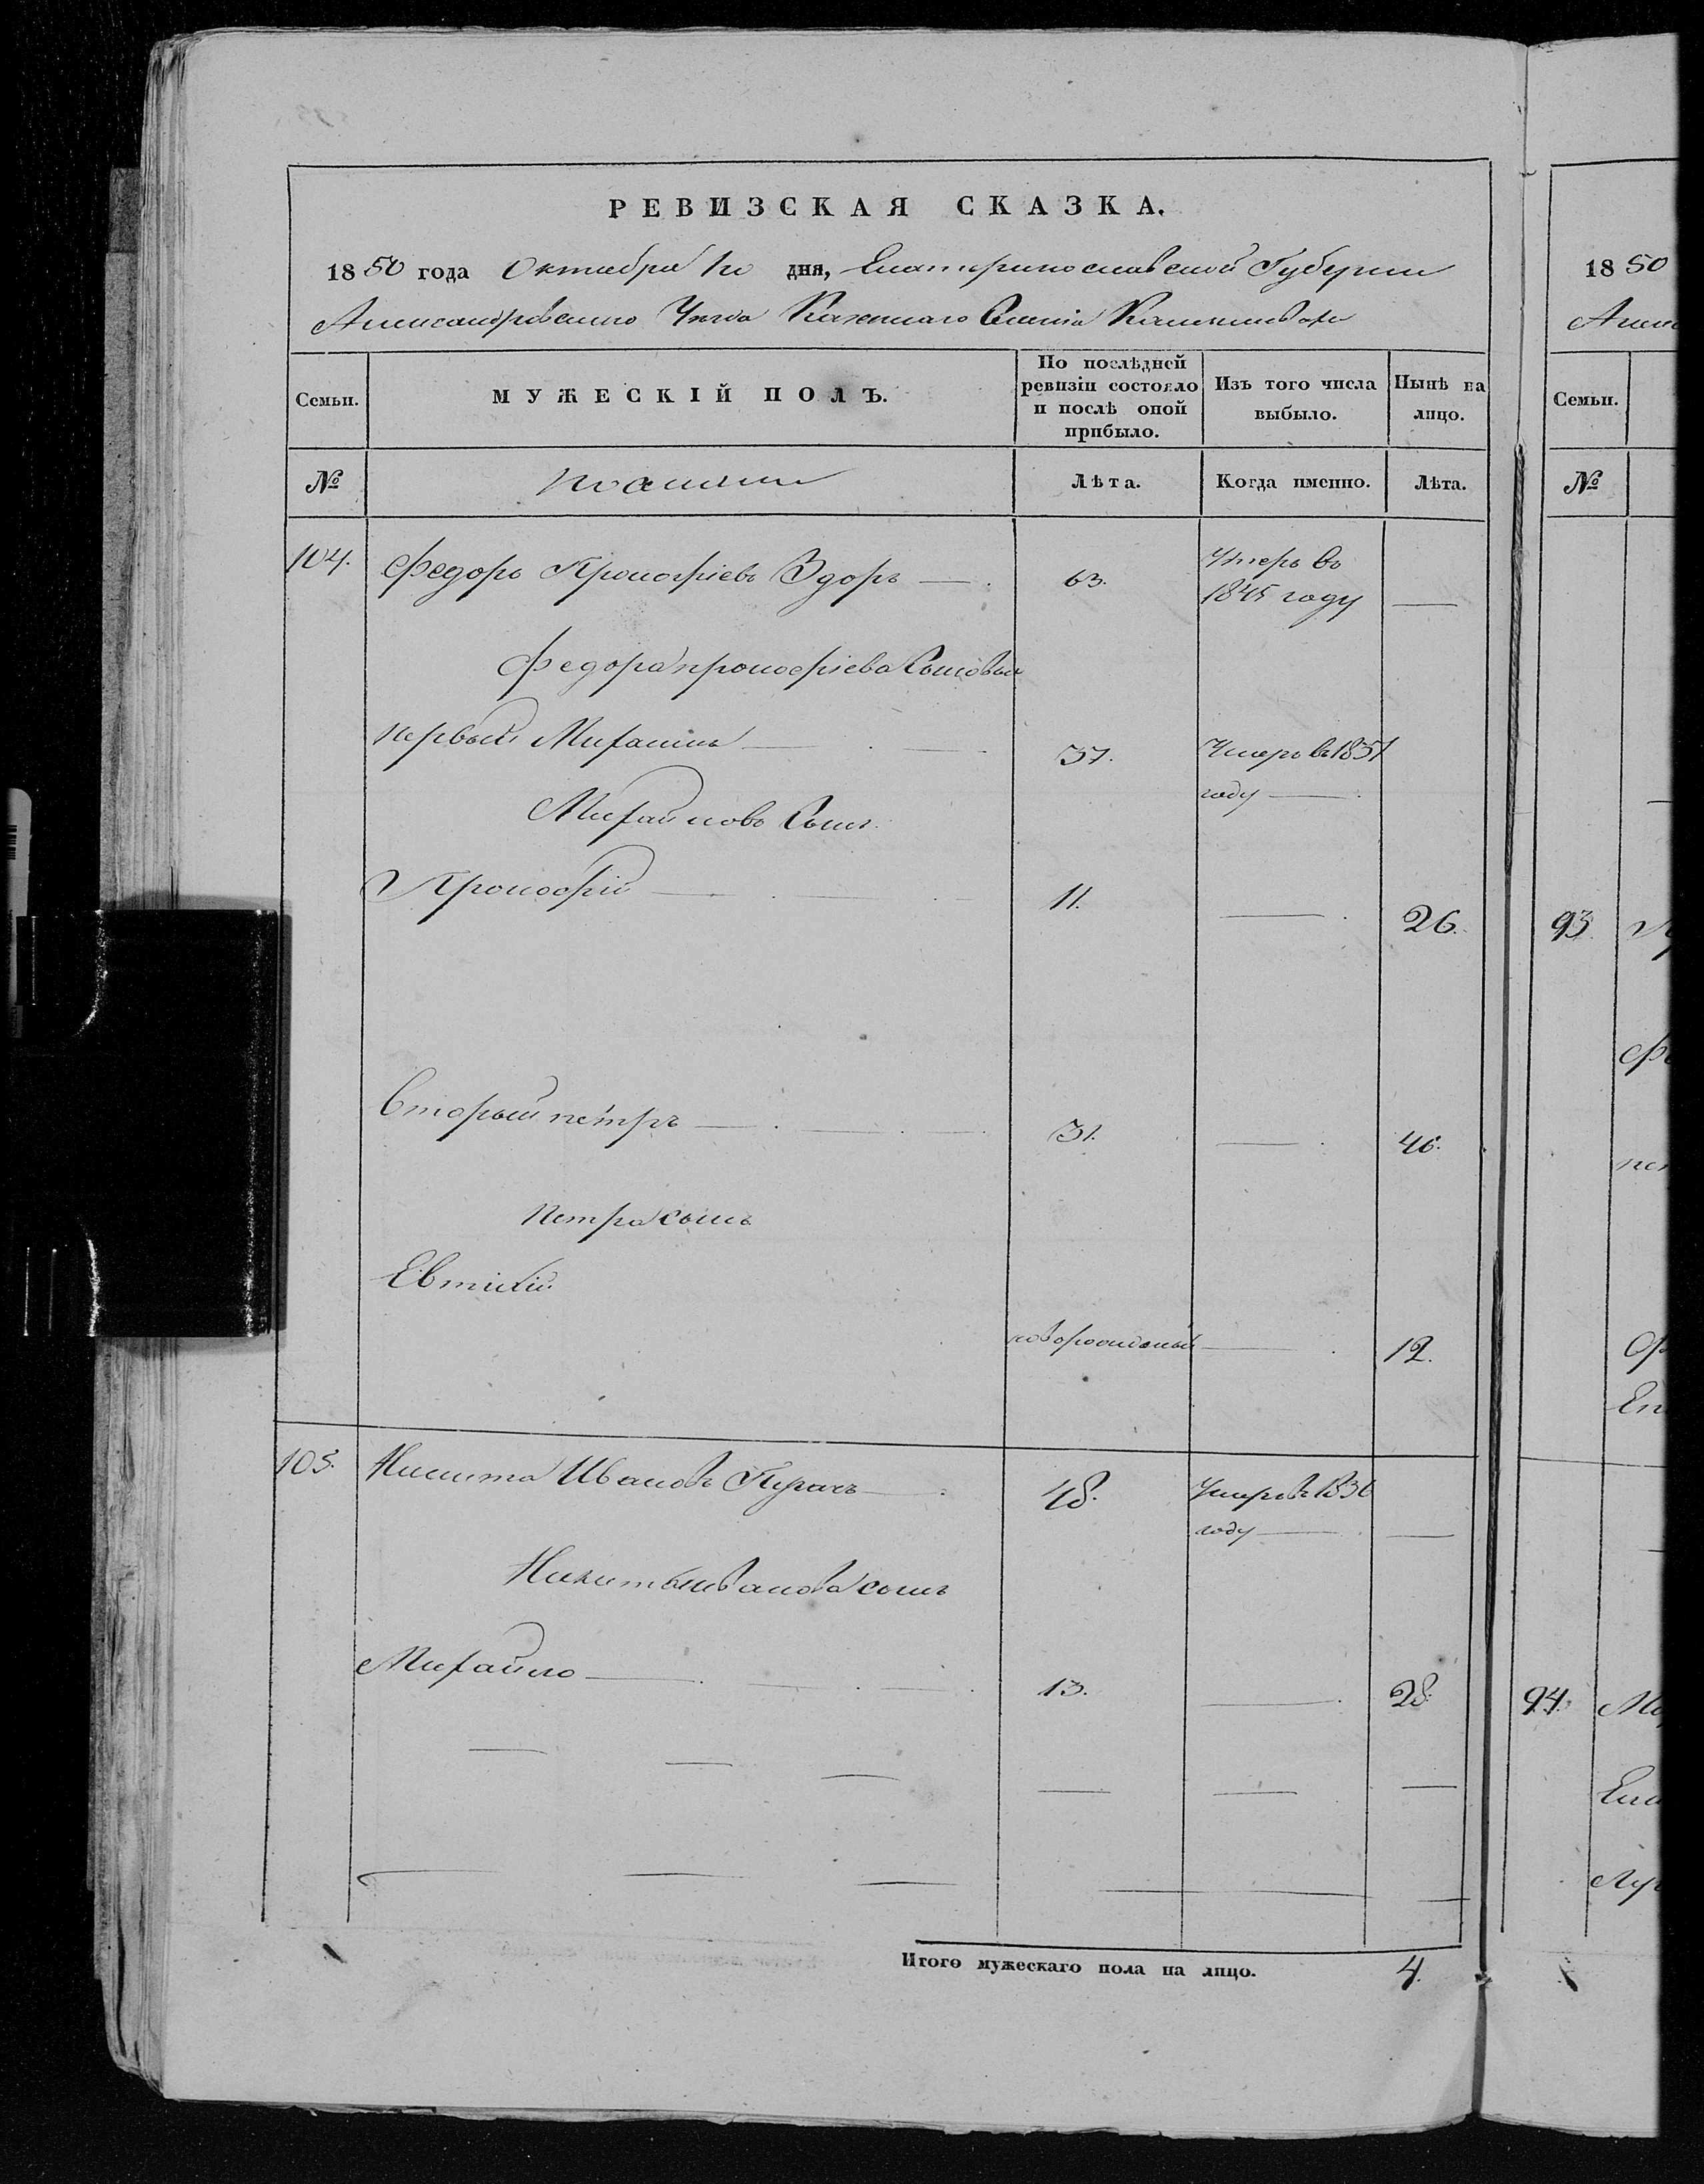 РЕВИЗСКАЯ СКАЗКА.
1850 года Октября 1го дня, Екатеринославской Губернии
Александровскаго Уезда Казеннаго Селенія
Семьи. МУЖЕСКІЙ ПОЛЪ. По послѣдней ревизіи состояло и послѣ оной прибыло. Изъ того числа выбыло. Нынѣ на лицо.
№ Лѣта. Когда именно. Лѣта.
104. Федоръ Пронофріевъ Здоръ — 63. Умеръ въ 1845 году —
Федора пронофріева Сыновья
первый Михаилъ — 37. Умеръ въ 1837 году —
Михайловъ Сынъ
Пронофрій — 11. — 26.
Вторый петръ — 31. — 46.
Петра сынъ
Евтихій
новорожденый — 12.
105. Никита Ивановъ — 48. Умеръ въ 1836 году — —
Никиты иванова сынъ
Михайло — 13. — 28.
Итого мужескаго пола на лицо. 4.
18 50
Семьи.
№
93.
94.